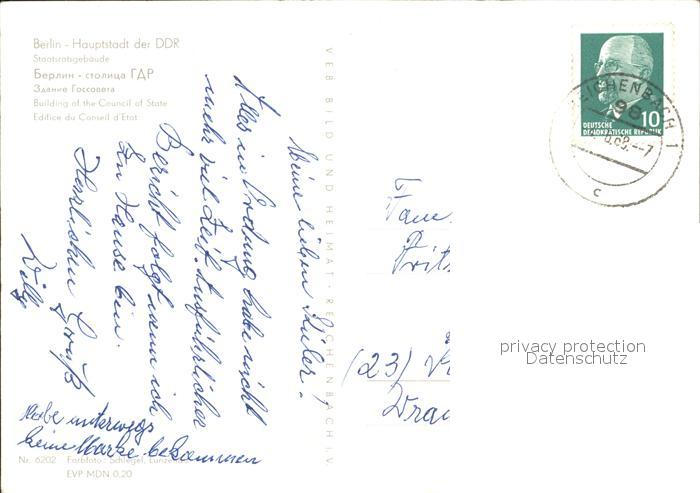 Berlin - Hauptstadt der DDR
Staatsratsgebäude
Берлин - столица ГДР
Здание Госсовета
Building of the Council of State
Edifice du Conseil d'Etat
VEB BILD UND HEIMAT · REICHENBACH i. V.
Meine lieben
Alles in Ordnung, habe nicht
mehr viel Zeit. Ausführlicher
Bericht folgt wenn ich
zu Hause bin.
Herzlichen Gruß
Willy
Habe unterwegs
keine Marke bekommen
Nr. 6202 Farbfoto: Schlegel,
EVP MDN 0,20
10
DEUTSCHE
DEMOKRATISCHE REPUBLIK
REICHENBACH 1
98
c
Fam.
Fritz
(23)
privacy protection
Datenschutz